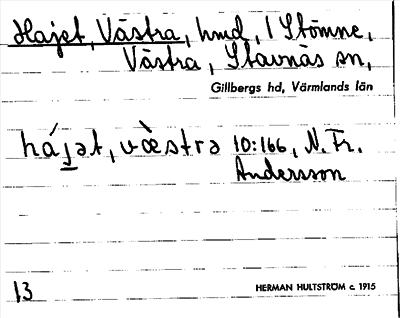 Hajet, Västra, hmd, i Stömne,
Västra, Stavnäs sn,
Gillbergs hd, Värmlands län
hájət, væ̀stra 10:166, N. Fr.
Andersson
13
HERMAN HULTSTRÖM c. 1915